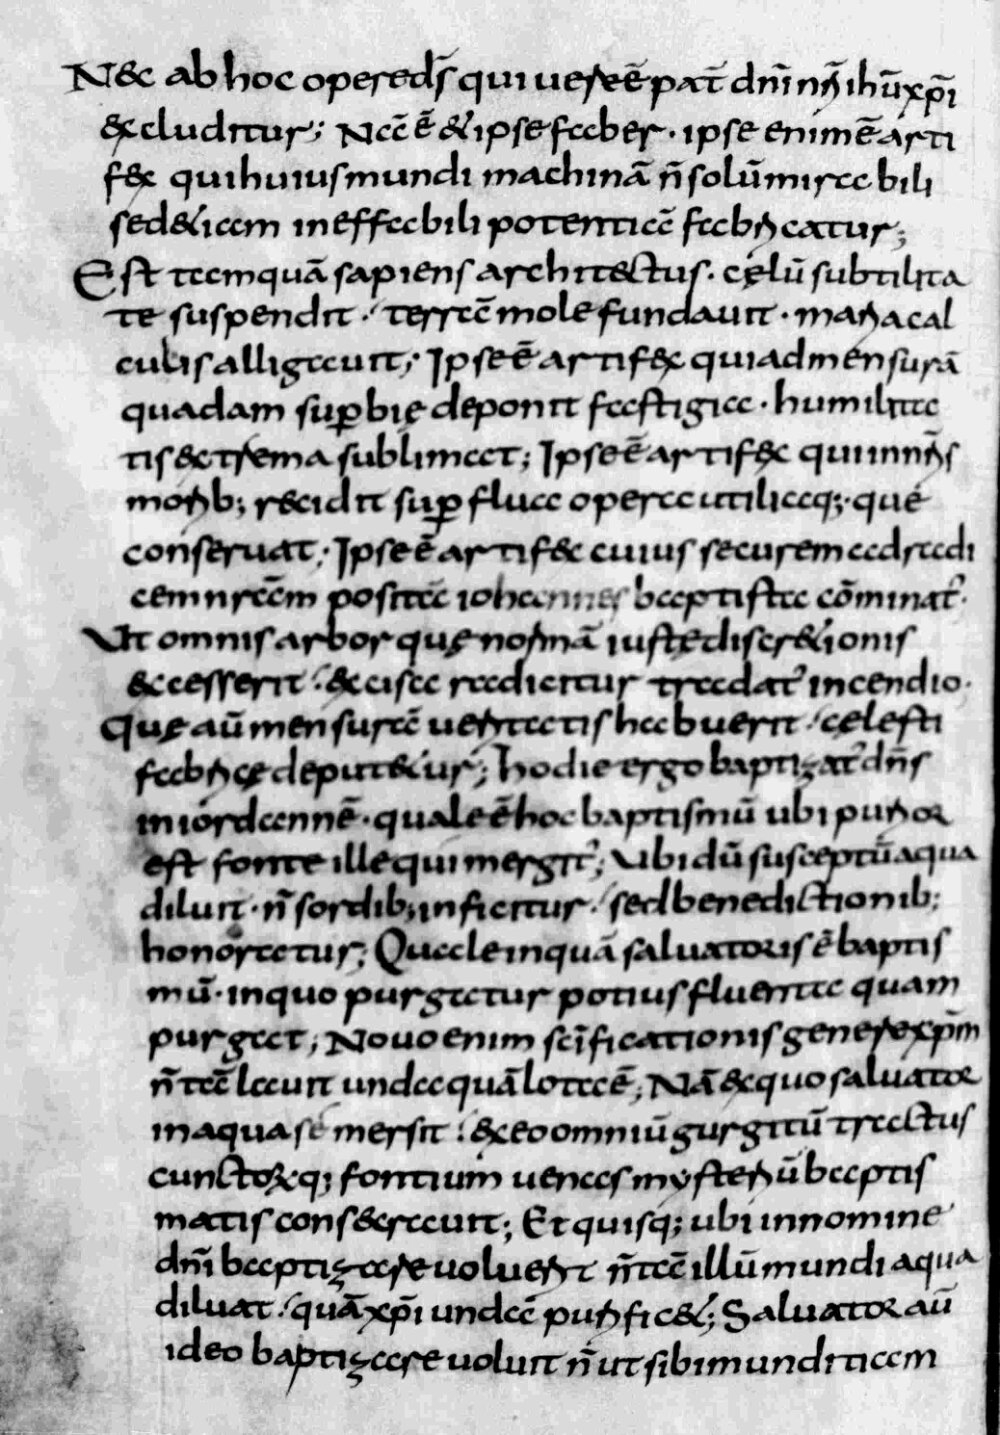 Nec ab hoc opere ds̄ qui uere ē pat̄ dn̄i nr̄i ihū xp̄i
excluditur; Nā ē &ipse faber · ipse enim ē arti
fex qui huius mundi machinā n̄ solū mirabili
sed &iam ineffabili potentiā fabricatur;
Est tamquā sapiens architectus · cęlū subtilita
te suspendit · terrā mole fundauit · maria cal
culis alligauit; Ipse ē artifex qui ad mensurā
quadam sup̄bię deponit fastigia · humilita
tis extrema sublimat; Ipse ē artifex qui in nr̄is
morib; recidit sup̄flua opera utiliaq; que
conseruat; Ipse ē artifex cuius securem ad radi
cem nr̄am positā iohannes baptista cōminat̄ ·
Ut omnis arbor quę normā iustę discr&ionis
excesserit · excisa radicitur tradat̄ incendio ·
Quę aū mensurā ueritatis habuerit · cęlesti
fabricę deput&ur; Hodie ergo baptizat̄ dn̄s
in iordannē · quale ē hoc baptismū ubi purior
est fonte ille qui mergit̄; Ubi dū susceptū aqua
diluit · n̄ sordib; inficitur · sed benedictionib;
honoratur; Quale inquā saluatoris ē baptis
mū · in quo purgatur potius fluenta quam
purgat; Nouo enim sc̄ificationis genere xp̄m
n̄ tā lauit unda quā lota ē; Nā ex quo saluator
in aqua se mersit · ex eo omniū gurgitū tractus
cunctorq; fontium uenas mysteriū baptis
matis consecrauit; Et quisq; ubi in nomine
dn̄i baptizare uoluerit n̄ tā illū mundi aqua
diluat · quā xp̄i undā purific&; Saluator aū
ideo baptizare uoluit n̄ ut sibi munditiam